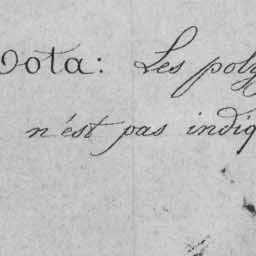 Nota: Les poly
n'est pas indiq